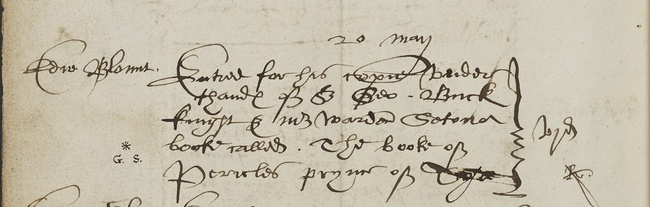 20 may
Edw Blount.
Entred for his copie vnder
thandꝭ of Sr Geo. Buck
knyght & mr warden Seton a
booke called. The booke of
Pericles prynce of Tyre
vjd
* G. S.
R.